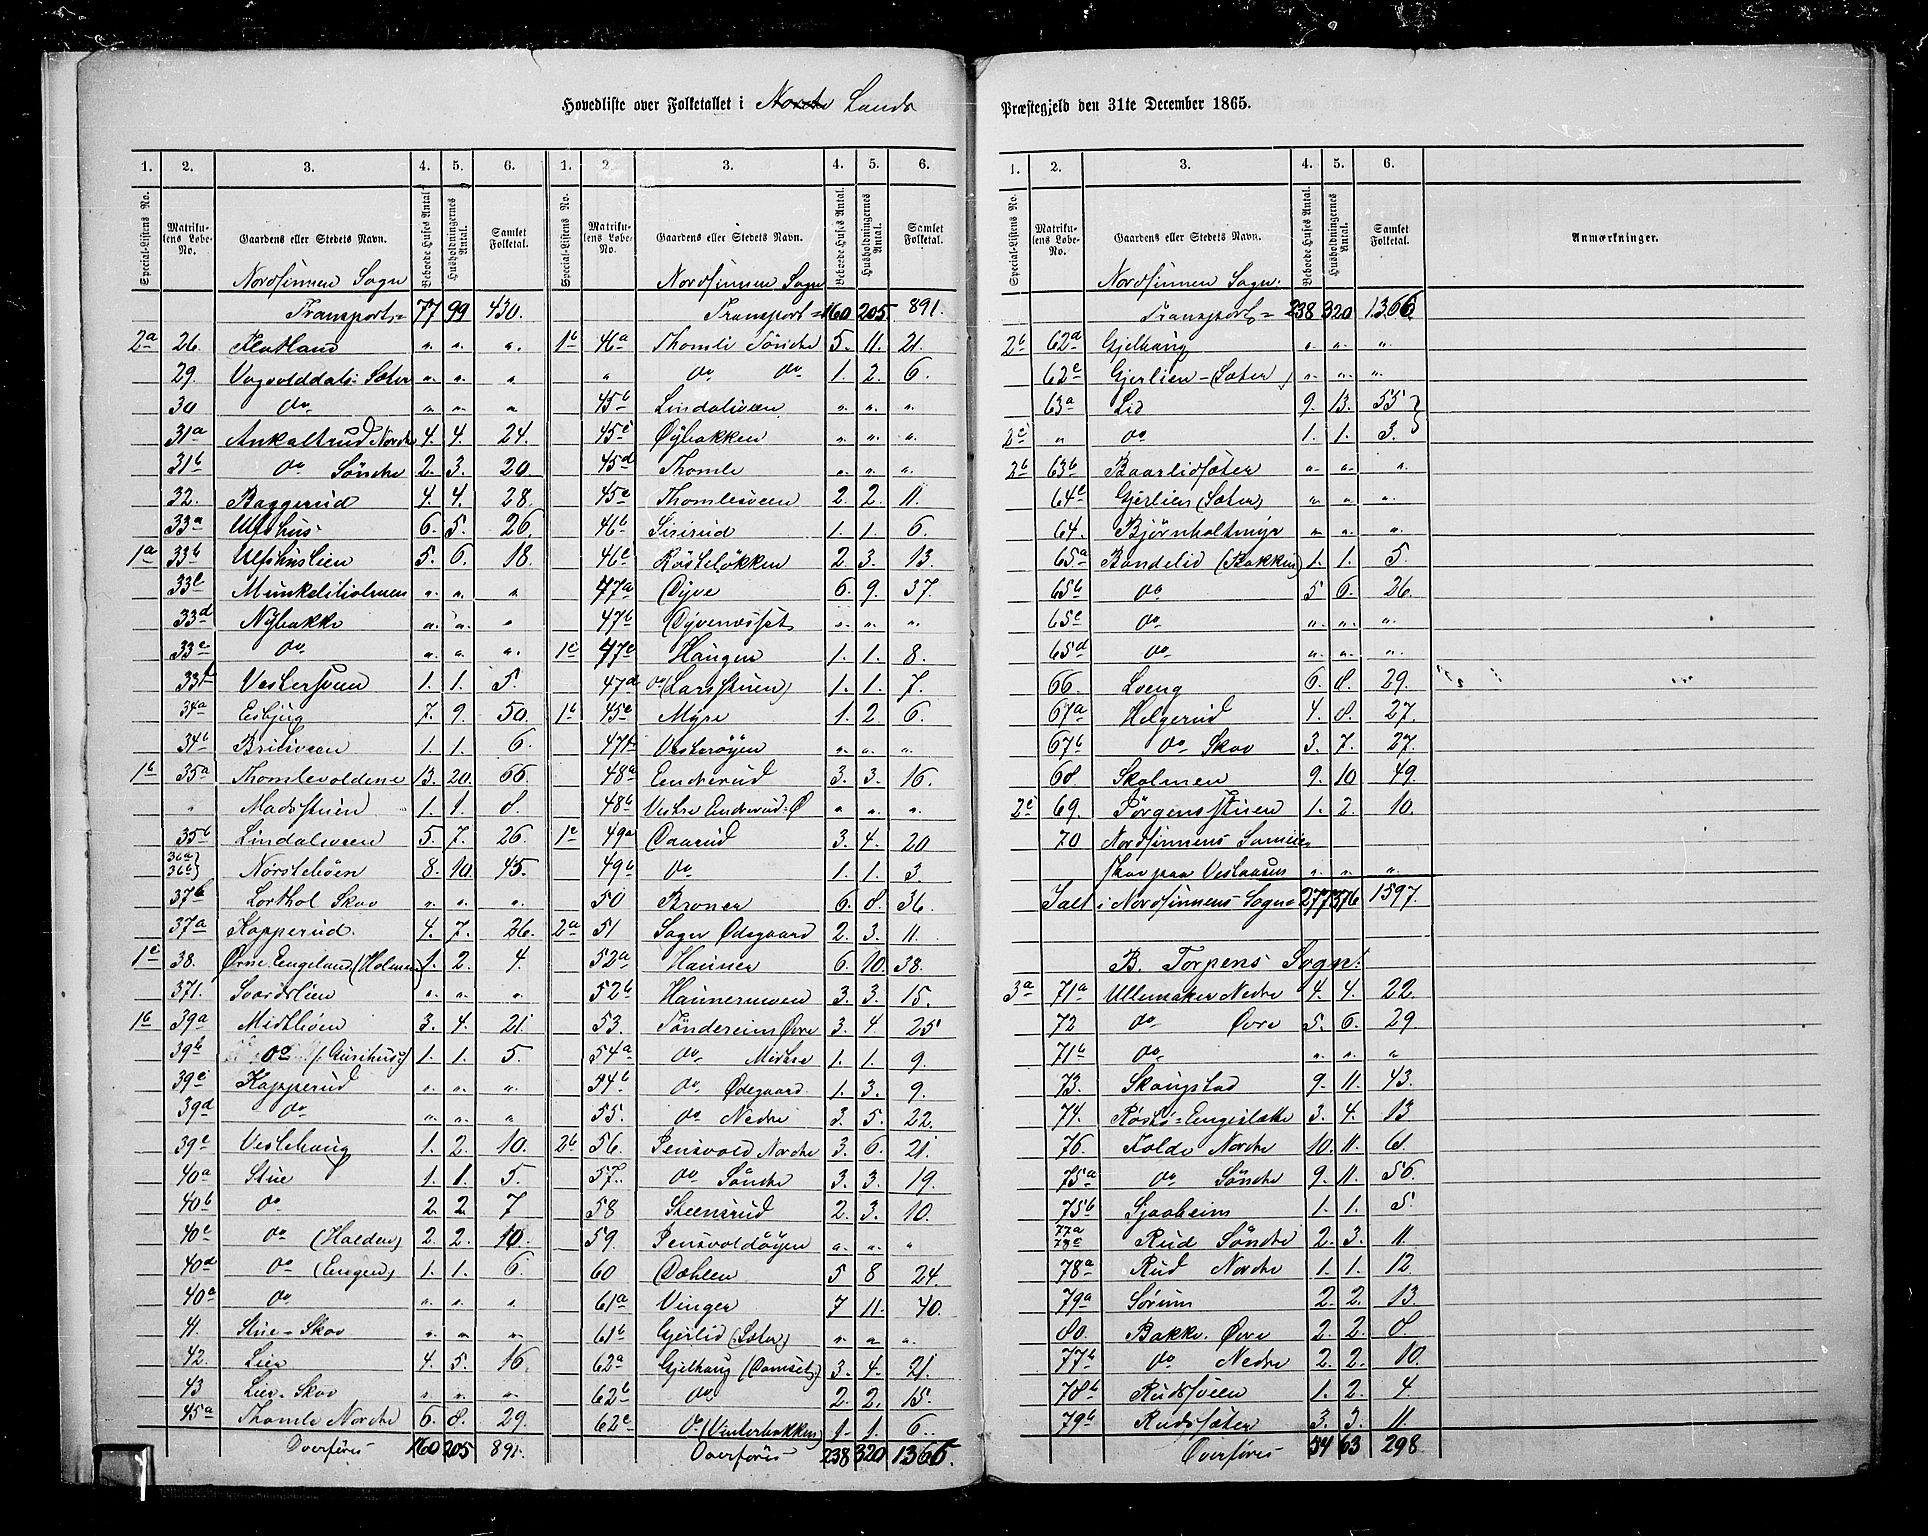 Hovedliste over Folketallet i Nordre Lands
Præstegjeld den 31te December 1865.
1. 2. 3. 4. 5. 6. 1. 2. 3. 4. 5. 6.
Special-Listens No. Matrikulens Løbe-No. Gaardens eller Stedets Navn. Beboede Huses Antal Husholdningernes Antal. Samlet Folketal. Special-Listens No. Matrikulens Løbe-No. Gaardens eller Stedets Navn. Beboede Huses Antal. Husholdningernes Antal. Samlet Folketal.
Nordsinnen Sogn
Transport = 77 99 430.
2a 26. Flatland " " "
29. Sæter " " "
30 do " " "
31a Ankaltrud Nordre 4. 4. 24.
31b do Søndre 2. 3. 20.
32. Baggerud 4. 4. 28.
33a Ulfshus 6. 5. 26.
1a 33b Ulfshuslien 5. 6. 18.
33c Munkeliholmen " " "
33d Nybakke " " "
33e do " " "
33f Vestersveen 1. 1. 5.
34a Esbjug 7. 9. 50.
34b 1. 1. 6.
1b 35a Thomlevoldene 13. 20. 66.
" Madsstuen 1. 1. 8.
35b Lindalsveen 5. 7. 26.
36a 36c Nørstebøen 8. 10. 45.
37b Lorthol Skov " " "
37a Kopperud. 4. 7. 26.
1c 38. Engeland (Holmen) 1. 2. 4.
371. Svardslien " " "
1b 39a Midthøen 3. 4. 21
39b do 1. 1. 5.
39c Kopperud " " "
39d do " " "
39e Vestehaug 1. 2. 10.
40a Stue 1. 1. 5.
40b do 2. 2. 7
40c do (Halden) 2. 2. 10.
40d do (Engen) 1. 1. 6.
40a do " " "
41. Stue-Skov " " "
42. Lien 4. 5. 16
43 Lien-Skov " " "
45a Thomle Nordre 6. 8. 29.
Overføres 160 205 891.
Nordsinnen Sogn
Transport = 160 205 891.
1b 46a Thomle Søndre 5. 11. 21.
" do do 1. 2. 6.
45b Lindalsveen " " "
45c Øybakken " " "
45d Thomle " " "
45e Thomlesveen 2 2. 11.
46b Sisirud 1. 1. 6.
46c Røsteløkken 2 3. 13.
47a Dyve 6. 9. 37.
47b " " "
1c 47c Haugen 1. 1. 8.
47d do (Larsstuen) 1. 1. 7.
1b 45e Myre 1. 2. 6.
47f Vesterøyen " " "
48a Enderud 3. 3. 16.
48b Vestre Enderud Ø " " "
1c 49a Daarud 3. 4. 20
49b do 1. 1. 3
50 Broner 6. 8. 36.
2a 51 Sogn Ødegaard 2. 3. 11.
52a Hauner 6. 10. 38.
52b Haunersveen 3. 3. 15.
53. Tøndereim Øvre 3. 4 25
54a do Midtre 1. 1. 9.
54b do Ødegaard 1. 3. 9.
55. do Nedre 3. 5. 22.
2b 56. Jensvold Nordre 3. 6. 21.
57. do Søndre 3. 3. 19.
58 Steensrud 2. 3. 10.
59. Jensvoldøyen " " "
60 Dæhlen 5 8 24.
61a Vinger 7 11. 40.
61b Gjerlid (Sæter) " " "
62a Gjelhaug 3. 4. 21.
62b do 2. 2. 15.
62c do (Vinterbakken) 1. 1. 6.
Overføres 238 320 1366.
1. 2. 3. 4. 5. 6.
Special-Listens No. Matrikulens Løbe-No. Gaardens eller Stedets Navn. Beboede Huses Antal. Husholdningernes Antal. Samlet Folketal. Anmærkninger.
Nordsinnen Sogn.
Transport = 238 320 1366.
2b 62d Gjelhaug " " "
62e Gjerlien - (Sæter) " " "
63a Lid 9. 13. 55
2c " do 1. 1. 3.
2b 63b Baarlidsæter " " "
64c Gjerlien (Sæter) " " "
64. Bjørnholtmyr " " "
65a Bondelid (Bakken) 1. 1. 5.
65b do 5 6. 26.
65c do " " "
65d do " " "
66. Loeng 6. 8. 29.
67a Helgerud 4. 8. 27.
67b do Skov 3. 7. 27.
68. Skolmen 9. 10 49.
2c 69. Jørgensstuen 1. 2. 10.
70 Nordsinnens Sameie
Skov paa " " "
Ialt i Nordsinnens Sogn 277 376 1597.
B. Torpens Sogn:
3a 71a Ullensaker Nedre 4. 4. 22.
72 do Øvre 5. 6. 29
71b do " " "
73. Skougstad 9. 11. 43.
74. Røste-Engeslætte 3. 4. 13
76. Folde Nordre 10. 11. 61.
75a do Søndre 9. 11. 56.
75b Gjaaheim 1. 1. 5.
77a 78c Rud Søndre 2. 3. 11.
78a Rud Nordre 1. 1. 12.
79a Sørum 2. 2. 13.
80. Bakke Øvre 2. 2. 8.
77b do Nedre 2. 2. 10.
78b Rudsveen 1. 2. 4
79b Rudsæter 3. 3. 11.
Overføres 54 63 298